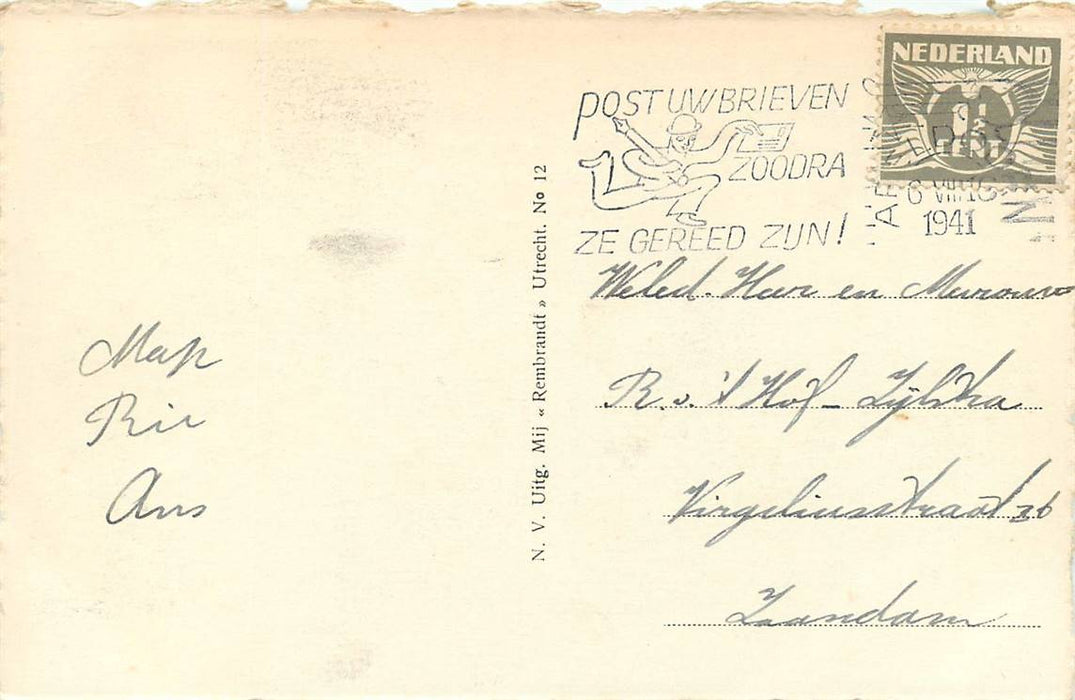 NEDERLAND
1½
CENT
POST UW BRIEVEN
ZOODRA
ZE GEREED ZIJN!
6 VIII 18
1941
Weled. Heer en Mevrouw
R. v. 't Hof - Zijlstra
Virgeliusstraat 36
Zaandam
Map
Rie
Ans
N. V. Uitg. Mij « Rembrandt » Utrecht. No 12